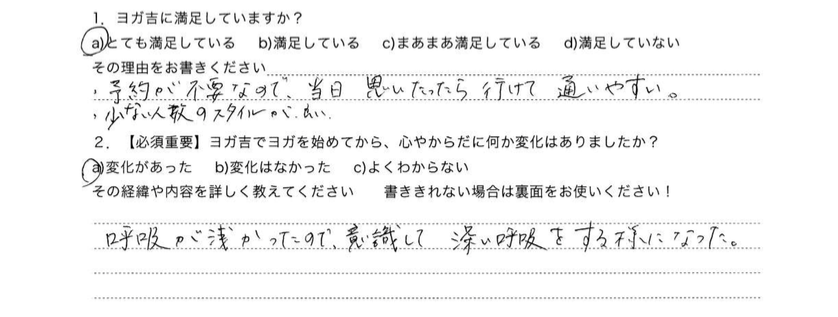 1．ヨガ吉に満足していますか？
a)とても満足している　b)満足している　c)まあまあ満足している　d)満足していない
その理由をお書きください
・予約が不要なので、当日 思いたったら 行けて 通いやすい。
・少ない人数のスタイルが、良い.
2．【必須重要】ヨガ吉でヨガを始めてから、心やからだに何か変化はありましたか？
a)変化があった　b)変化はなかった　c)よくわからない
その経緯や内容を詳しく教えてください　　書ききれない場合は裏面をお使いください！
呼吸が浅かったので、意識して 深い呼吸をする様になった。